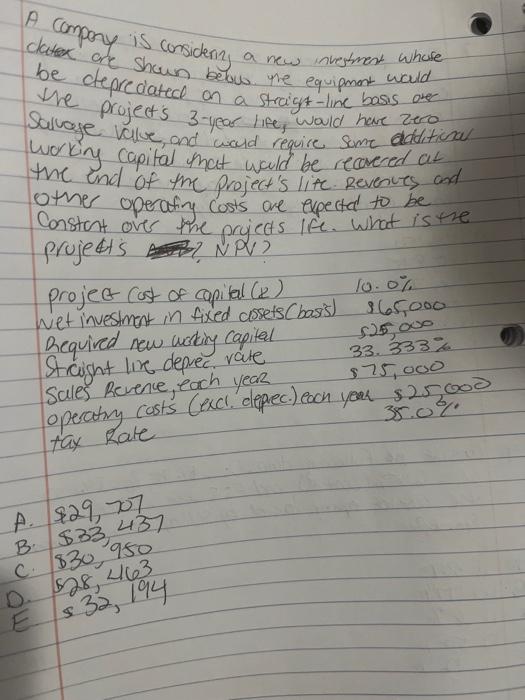 A company is considering a new investment whose
datex are shown below the equipment would
be depreciated on a straigt-line basis over
the project's 3-year life, would have zero
Salvage Value, and would require some additional
working capital that would be recovered at
the end of the project's life. Revenues and
other operating costs are expected to be
Constant over the projects life. What is the
project's ? NPV?
project cost of capital (r) 10.0%
Net investment in fixed assets (basis) $65,000
Required new working Capital $25,000
Straight line deprec. rate 33.333%
Sales Revenue, each year $75,000
operating costs (excl. deprec.) each year $25000
tax Rate 35.0%
A. $29,707
B. $33,437
C. $30,950
D. $28,463
E $32,194